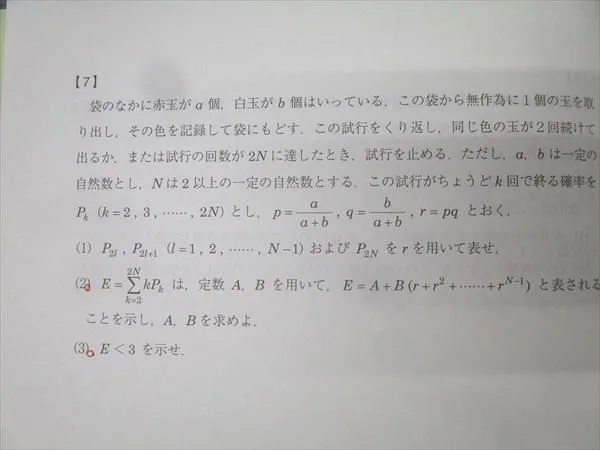 【7】
袋のなかに赤玉が a 個，白玉が b 個はいっている．この袋から無作為に1個の玉を取
り出し，その色を記録して袋にもどす．この試行をくり返し，同じ色の玉が2回続けて
出るか，または試行の回数が 2N に達したとき，試行を止める．ただし，a，b は一定の
自然数とし，N は2以上の一定の自然数とする．この試行がちょうど k 回で終る確率を
P_k (k=2, 3, ……, 2N) とし，p=a/(a+b)，q=b/(a+b)，r=pq とおく．
(1) P_{2l}，P_{2l+1} (l=1, 2, ……, N−1) および P_{2N} を r を用いて表せ．
(2) E=∑_{k=2}^{2N} kP_k は，定数 A，B を用いて，E=A+B(r+r^2+……+r^{N−1}) と表される
ことを示し，A，B を求めよ．
(3) E<3 を示せ．